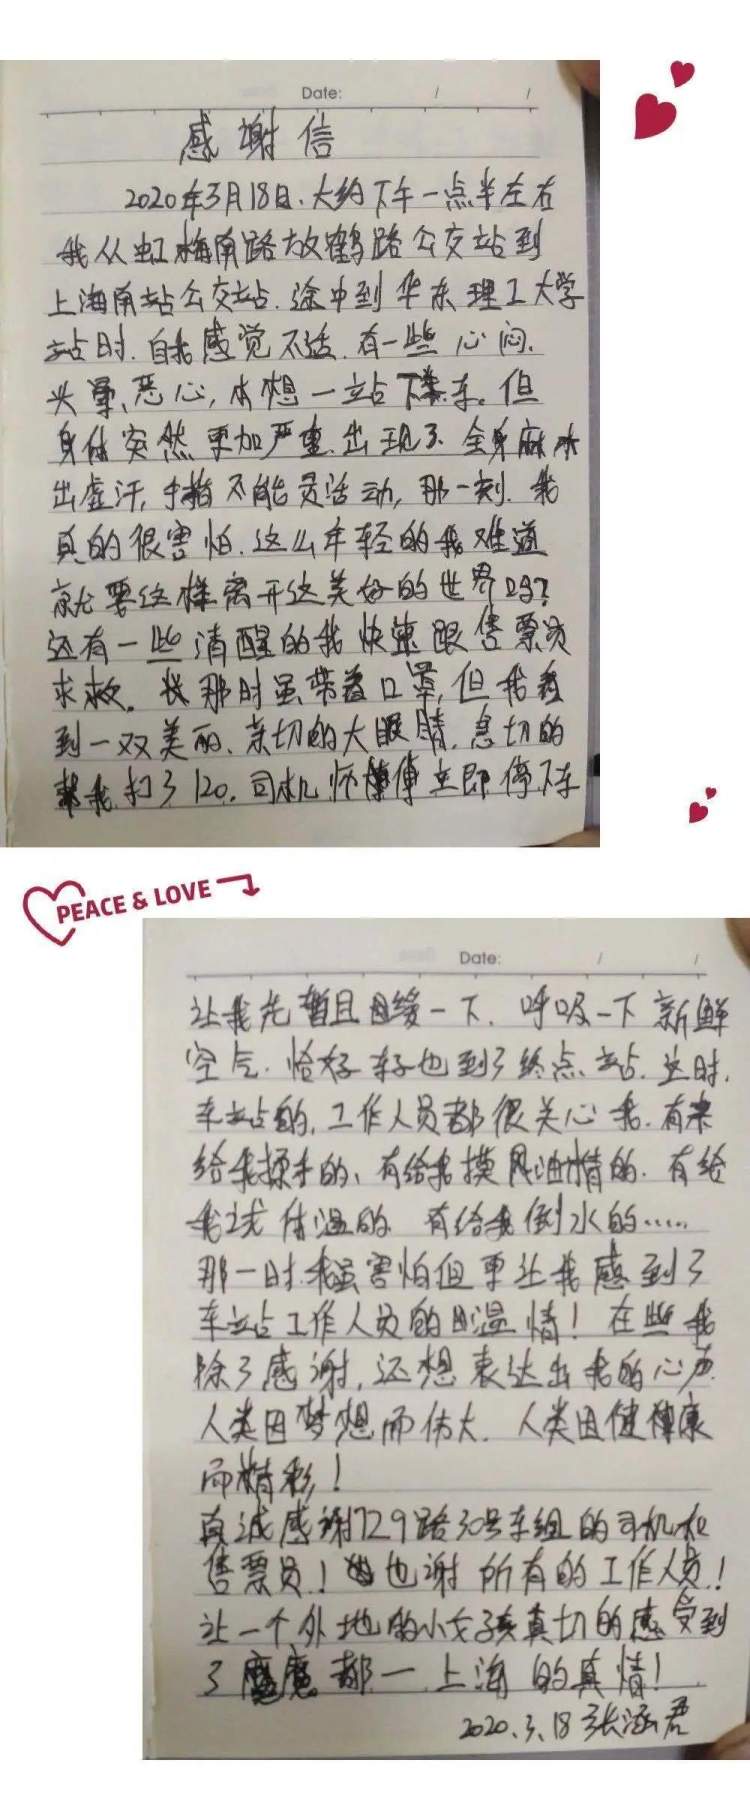 Date: / /
感谢信
2020年3月18日、大约下午一点半左右
我从虹梅南路放鹤路公交站到
上海南站公交站.途中到华东理工大学
站时.自我感觉不适.有一些心闷、
头晕、恶心,本想一站下车。但
身体突然更加严重.出现了.全身麻木
出虚汗,手指不能灵活动,那一刻.我
真的很害怕.这么年轻的我难道
就要这样离开这美好的世界吗?
还有一些清醒的我快速跟售票员
求救。我那时虽带着口罩,但我看
到一双美丽、亲切的大眼睛,急切的
帮我打了120.司机师傅立即停下车
PEACE & LOVE
Date: / /
让我先暂且缓一下.呼吸一下新鲜
空气.恰好车子也到了终点站.这时,
车站的,工作人员都很关心我.有来
给我揉手的、有给我摸风油精的.有给
我试体温的 有给我倒水的.....
那一时.我虽害怕但更让我感到了
车站工作人员的温情!在些我
除了感谢,还想表达出我的心声.
人类因梦想而伟大.人类因健康
而精彩!
真诚感谢729路30号车组的司机和
售票员!也谢所有的工作人员!
让一个外地的小女孩真切的感受到
了魔都一上海的真情!
2020.3.18 张涵君